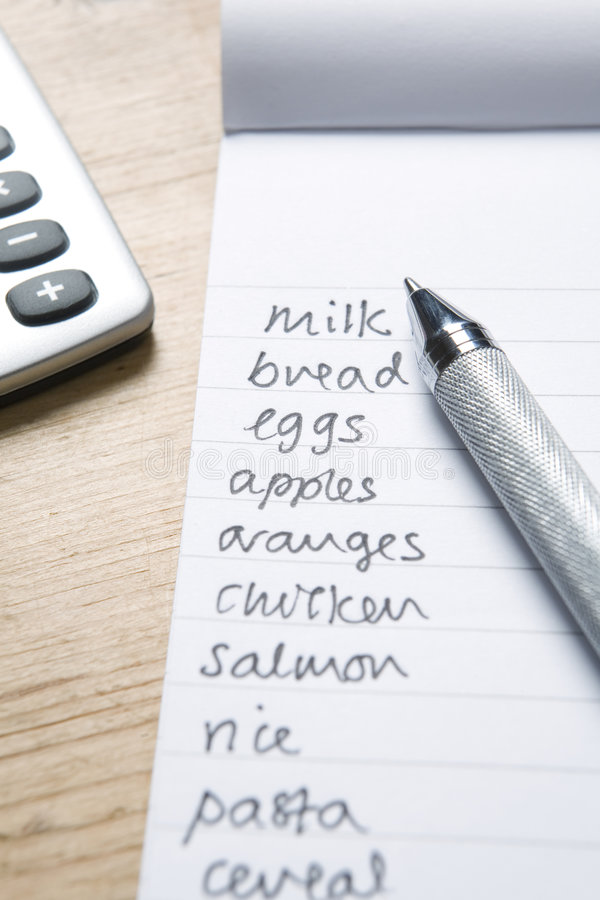 milk
bread
eggs
apples
oranges
chicken
salmon
rice
pasta
cereal
dreamstime
+